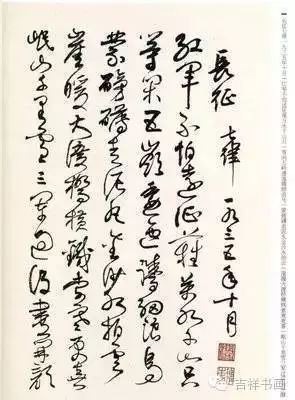 長征 七律 一九三五年十月
红軍不怕遠征難萬水千山只
等闲五嶺逶迤騰細浪烏
蒙磅礴走泥丸金沙水拍雲
崖暖大渡橋横鐵索寒更喜
岷山千里雪三軍过後盡開颜
吉祥书画